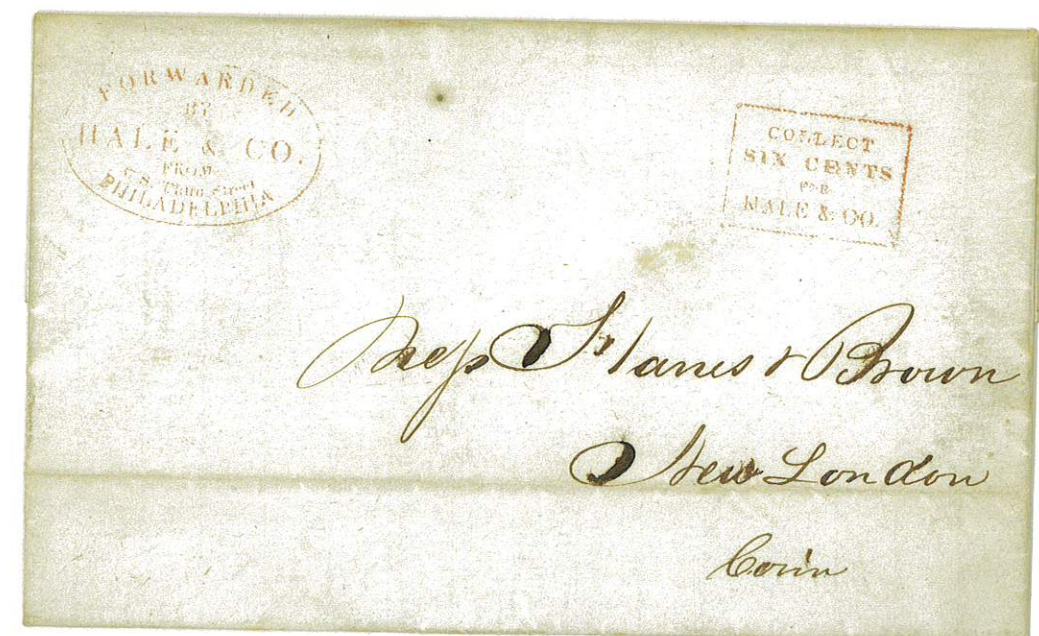 FORWARDED
BY
HALE & CO.
FROM
Third Street
PHILADELPHIA
COLLECT
SIX CENTS
FOR
HALE & CO.
Mess
& Brown
New London
Conn